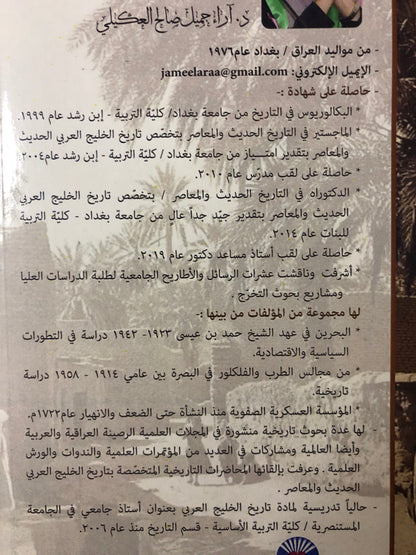 د. آراء جميل صالح العكيلي
- من مواليد العراق / بغداد عام ١٩٧٦
- الإيميل الإلكتروني: jameelaraa@gmail.com
- حاصلة على شهادة :-
* البكالوريوس في التاريخ من جامعة بغداد/ كليّة التربية - إبن رشد عام ١٩٩٩.
* الماجستير في التاريخ الحديث والمعاصر بتخصّص تاريخ الخليج العربي الحديث
والمعاصر بتقدير امتيـــاز من جامعة بغداد / كلية التربية - إبن رشد عام٢٠٠٤.
* حاصلة على لقب مدرّس عام ٢٠١٠.
* الدكتوراه في التاريخ الحديث والمعاصر / بتخصّص تاريخ الخليج العربي
الحديث والمعاصر بتقدير جيّد جداً عالٍ من جامعة بغداد - كلية التربية
للبنات عام ٢٠١٤.
* حاصلة على لقب أستاذ مساعد دكتور عام ٢٠١٩.
* أشرفت وناقشت عشرات الرسائل والأطاريح الجامعية لطلبة الدراسات العليا
ومشاريع بحوث التخرّج .
لها مجموعة من المؤلفات من بينها :-
* البحرين في عهد الشيخ حمد بن عيسى ١٩٢٣- ١٩٤٢ دراسة في التطورات
السياسية والاقتصادية.
* من مجالس الطرب والفلكلور في البصرة بين عامي ١٩١٤ - ١٩٥٨ دراسة
تاريخية.
* المؤسسة العسكرية الصفوية منذ النشأة حتى الضعف والانهيار عام١٧٢٢م.
- لها عدة بحوث تاريخية منشورة في المجلات العلمية الرصينة العراقية والعربية
وأيضا العالمية ومشاركات في العديد من المؤتمرات العلمية والندوات والورش
العلمية . وعرفت بإلقائها المحاضرات التاريخية المتخصّصة بتاريخ الخليج العربي
الحديث والمعاصر .
- حالياً تدريسية لمادة تاريخ الخليج العربي بعنوان أستاذ جامعي في الجامعة
المستنصرية / كليّة التربية الأساسية - قسم التاريخ منذ عام ٢٠٠٦.